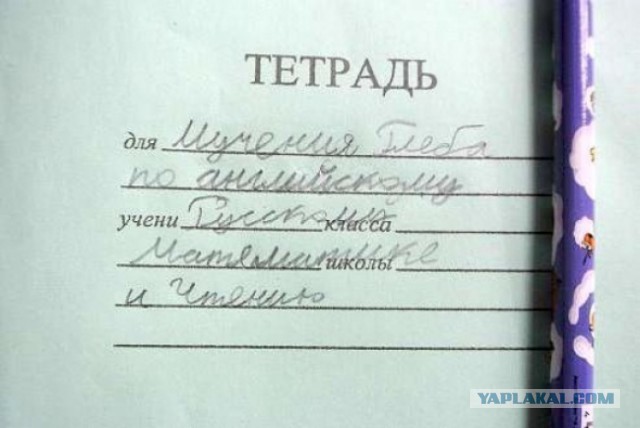 ТЕТРАДЬ
для Мучения Глеба
по английскому
учени Русскому класса
Математике школы
и Чтению
YAPLAKAL.COM